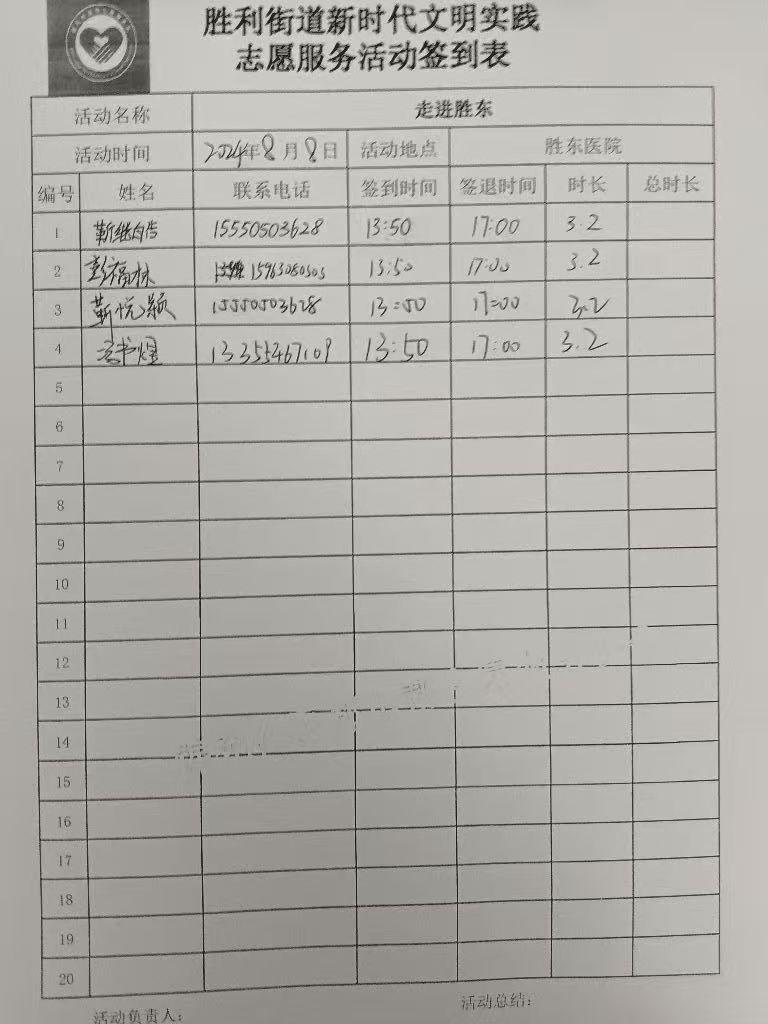 胜利街道新时代文明实践
志愿服务活动签到表
活动名称 走进胜东
活动时间 2024年8月8日 活动地点 胜东医院
编号 姓名 联系电话 签到时间 签退时间 时长 总时长
1 靳继浩 15550503628 13:50 17:00 3.2
2 彭福林 15963080505 13:50 17:00 3.2
3 靳悦颖 15550503628 13:50 17:00 3.2
4 书煜 13355467109 13:50 17:00 3.2
5
6
7
8
9
10
11
12
13
14
15
16
17
18
19
20
活动负责人: 活动总结: